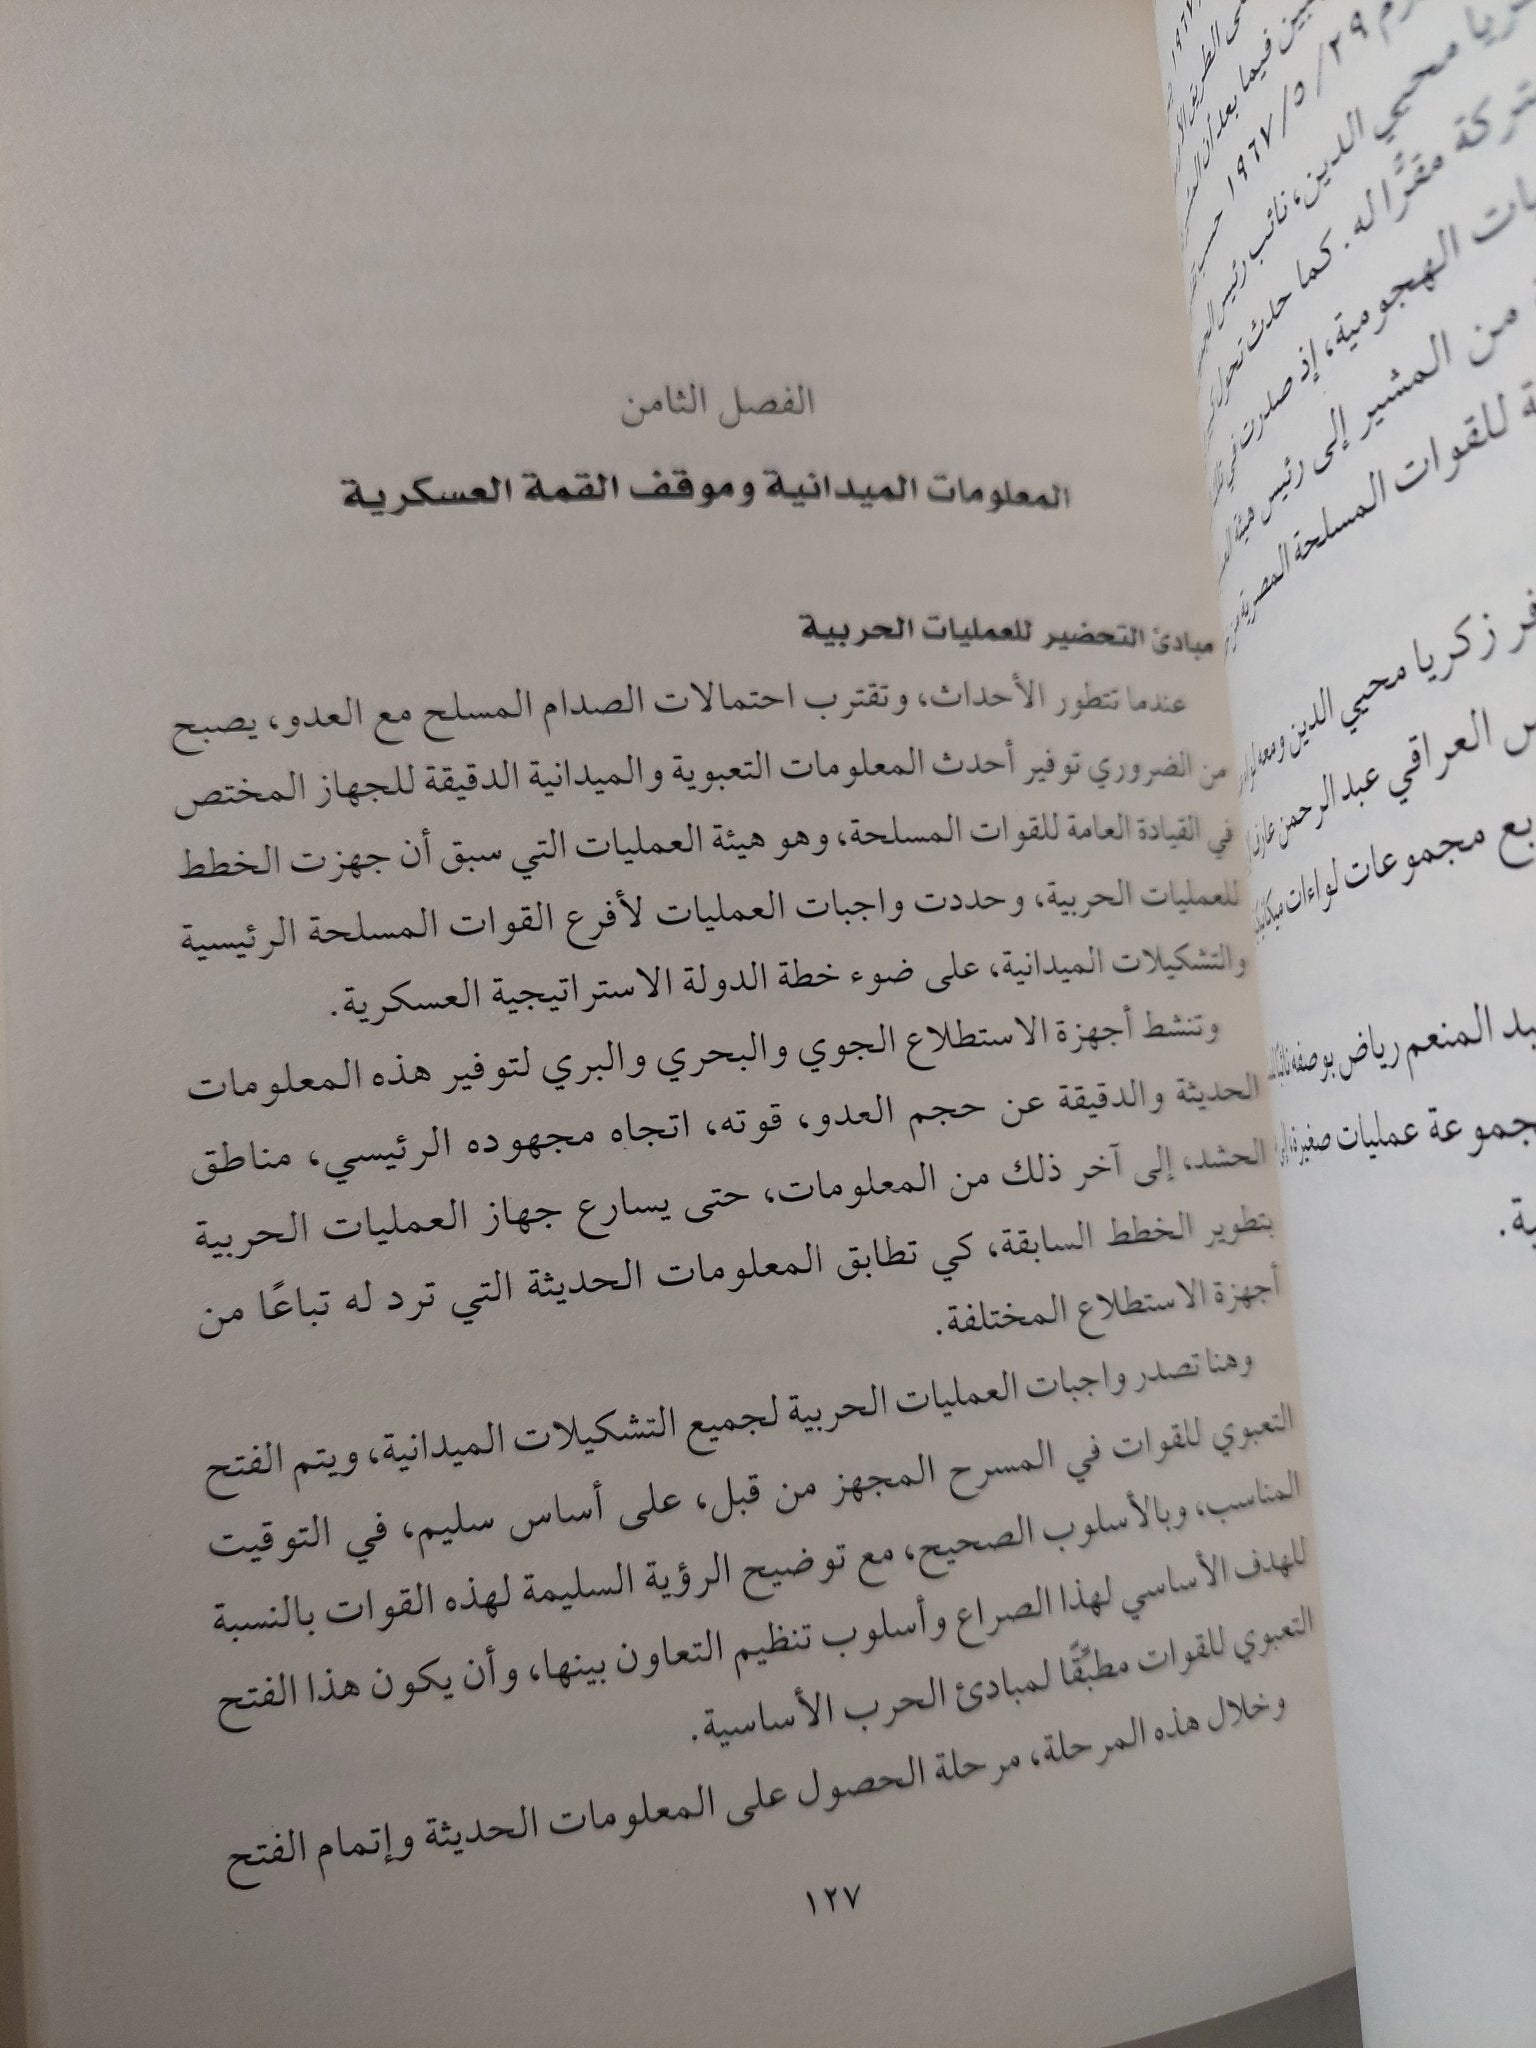 الفصل الثامن
المعلومات الميدانية وموقف القمة العسكرية
مبادئ التحضير للعمليات الحربية
عندما تتطور الأحداث، وتقترب احتمالات الصدام المسلح مع العدو، يصبح
من الضروري توفير أحدث المعلومات التعبوية والميدانية الدقيقة للجهاز المختص
في القيادة العامة للقوات المسلحة، وهو هيئة العمليات التي سبق أن جهزت الخطط
للعمليات الحربية، وحددت واجبات العمليات لأفرع القوات المسلحة الرئيسية
والتشكيلات الميدانية، على ضوء خطة الدولة الاستراتيجية العسكرية.
وتنشط أجهزة الاستطلاع الجوي والبحري والبري لتوفير هذه المعلومات
الحديثة والدقيقة عن حجم العدو، قوته، اتجاه مجهوده الرئيسي، مناطق
الحشد، إلى آخر ذلك من المعلومات، حتى يسارع جهاز العمليات الحربية
بتطوير الخطط السابقة، كي تطابق المعلومات الحديثة التي ترد له تباعًا من
أجهزة الاستطلاع المختلفة.
وهنا تصدر واجبات العمليات الحربية لجميع التشكيلات الميدانية، ويتم الفتح
التعبوي للقوات في المسرح المجهز من قبل، على أساس سليم، في التوقيت
المناسب، وبالأسلوب الصحيح، مع توضيح الرؤية السليمة لهذه القوات بالنسبة
للهدف الأساسي لهذا الصراع وأسلوب تنظيم التعاون بينها، وأن يكون هذا الفتح
التعبوي للقوات مطبِّقًا لمبادئ الحرب الأساسية.
وخلال هذه المرحلة، مرحلة الحصول على المعلومات الحديثة وإتمام الفتح
١٢٧
٢٩/ ٥/ ١٩٦٧ حسب
محيي الدين، نائب رئيس
مقرًّا له. كما حدث تحول
الهجومية، إذ صدرت في
من المشير إلى رئيس هيئة
للقوات المسلحة المصرية
زكريا محيي الدين ومعه
العراقي عبد الرحمن عارف
مجموعات لواءات
المنعم رياض بوصفه
عمليات صغيرة